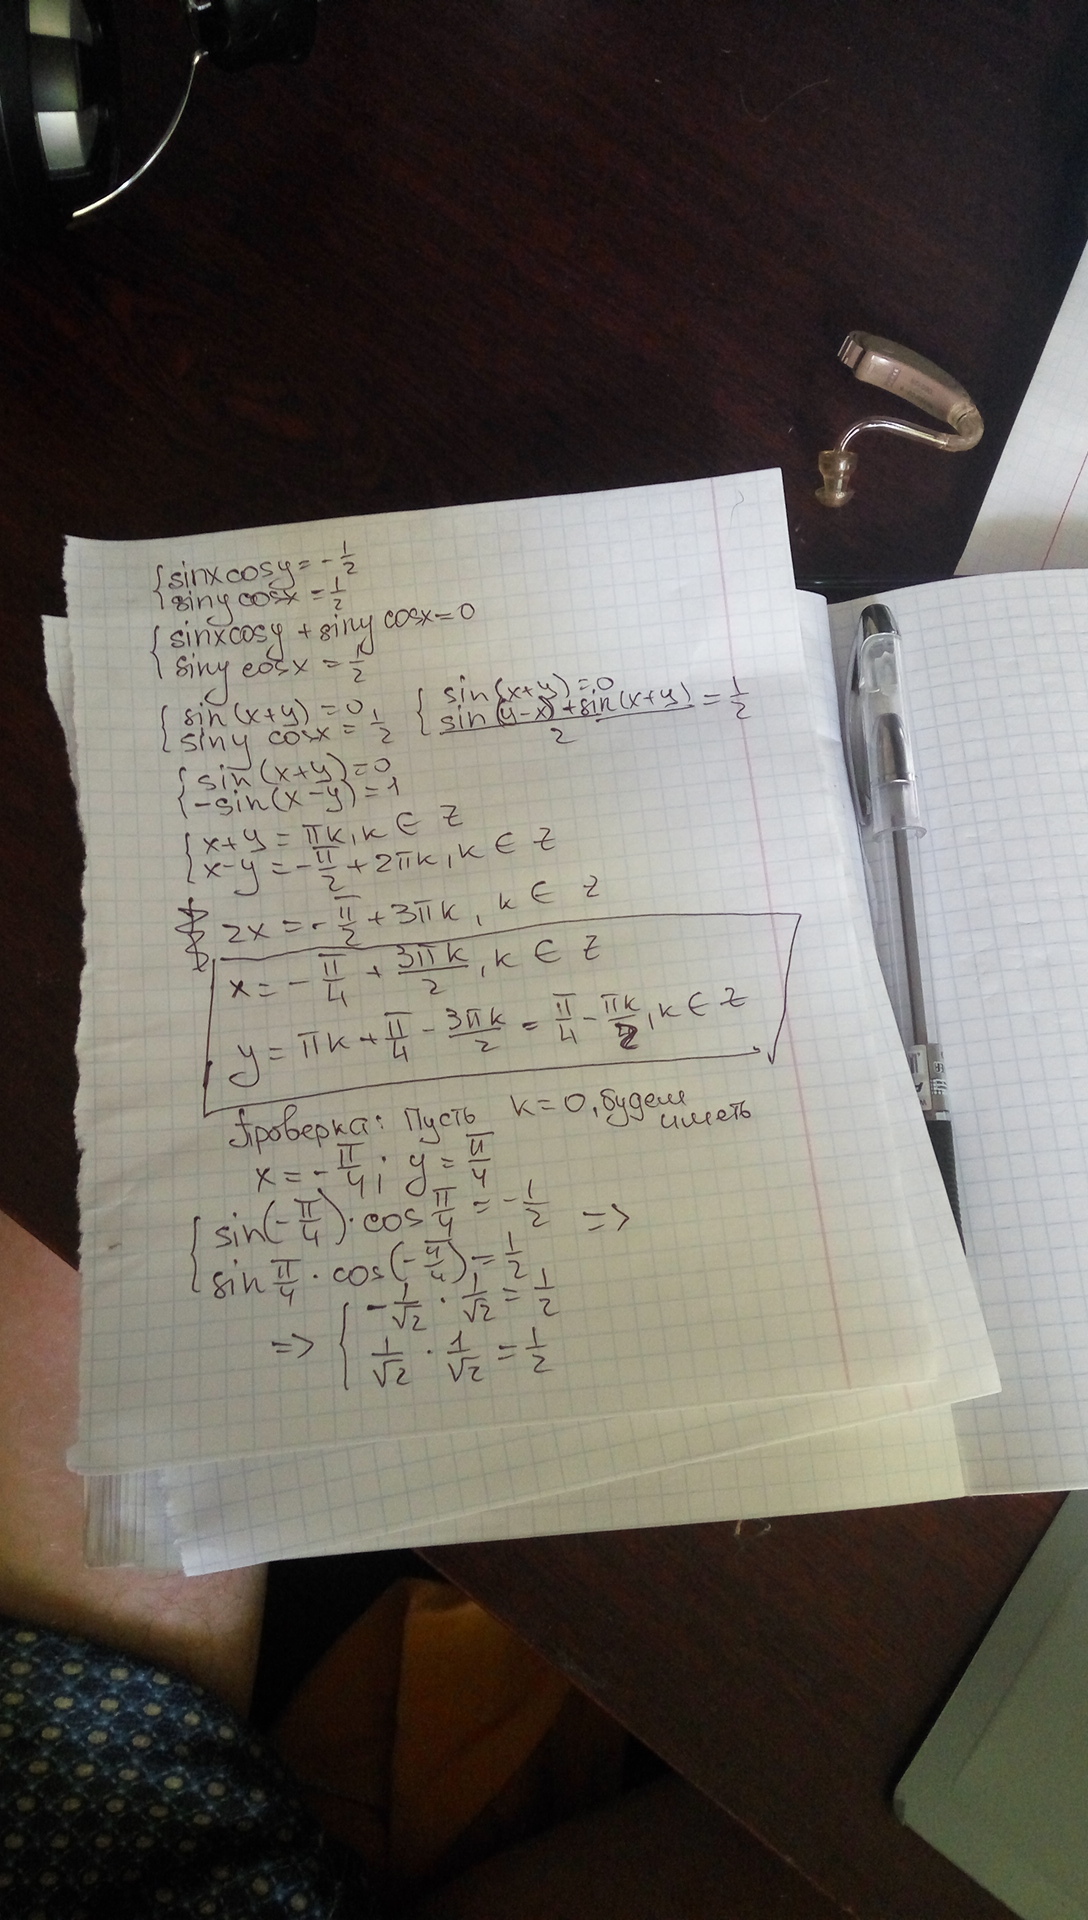 {sinxcosy=-1/2
{siny cosx=1/2
{sinxcosy+siny cosx=0
{siny cosx=1/2
{sin(x+y)=0
{siny cosx=1/2
{sin(x+y)=0
{(sin(y-x)+sin(x+y))/2=1/2
{sin(x+y)=0
{-sin(x-y)=1
{x+y=πk, k ∈ Z
{x-y=-π/2+2πk, k ∈ Z
2x=-π/2+3πk, k ∈ Z
x=-π/4+3πk/2, k ∈ Z
y=πk+π/4-3πk/2=π/4-πk/2, k ∈ Z
Проверка: Пусть k=0, будем
иметь
x=-π/4; y=π/4
{sin(-π/4)·cosπ/4=-1/2 =>
{sinπ/4·cos(-π/4)=1/2
=> {-1/√2·1/√2=1/2
{1/√2·1/√2=1/2